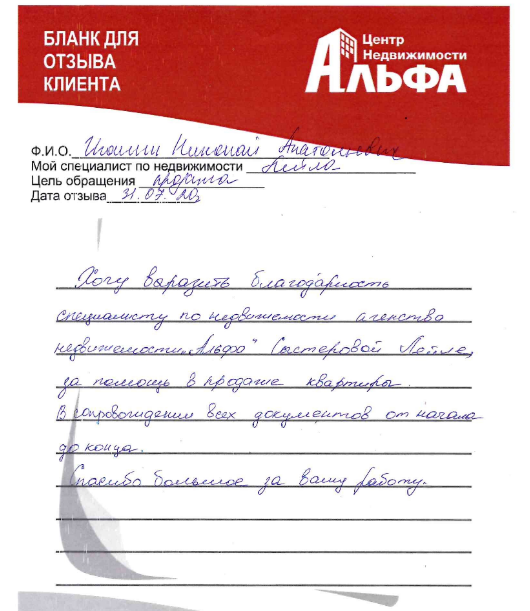 БЛАНК ДЛЯ
ОТЗЫВА
КЛИЕНТА
Центр
Недвижимости
АЛЬФА
Ф.И.О. Николай Анатольевич
Мой специалист по недвижимости Лейла
Цель обращения продажа
Дата отзыва 31.07.20
Хочу выразить благодарность
специалисту по недвижемости агенства
недвижемости „Альфа" Сыстеровой Лейле,
за помощь в продаже квартиры.
В сопровождении всех документов от начала
до конца.
Спасибо большое за вашу работу.